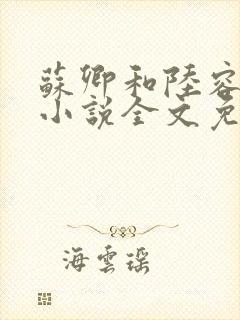 蘇卿和陸容
小說全文免
海雲瑤